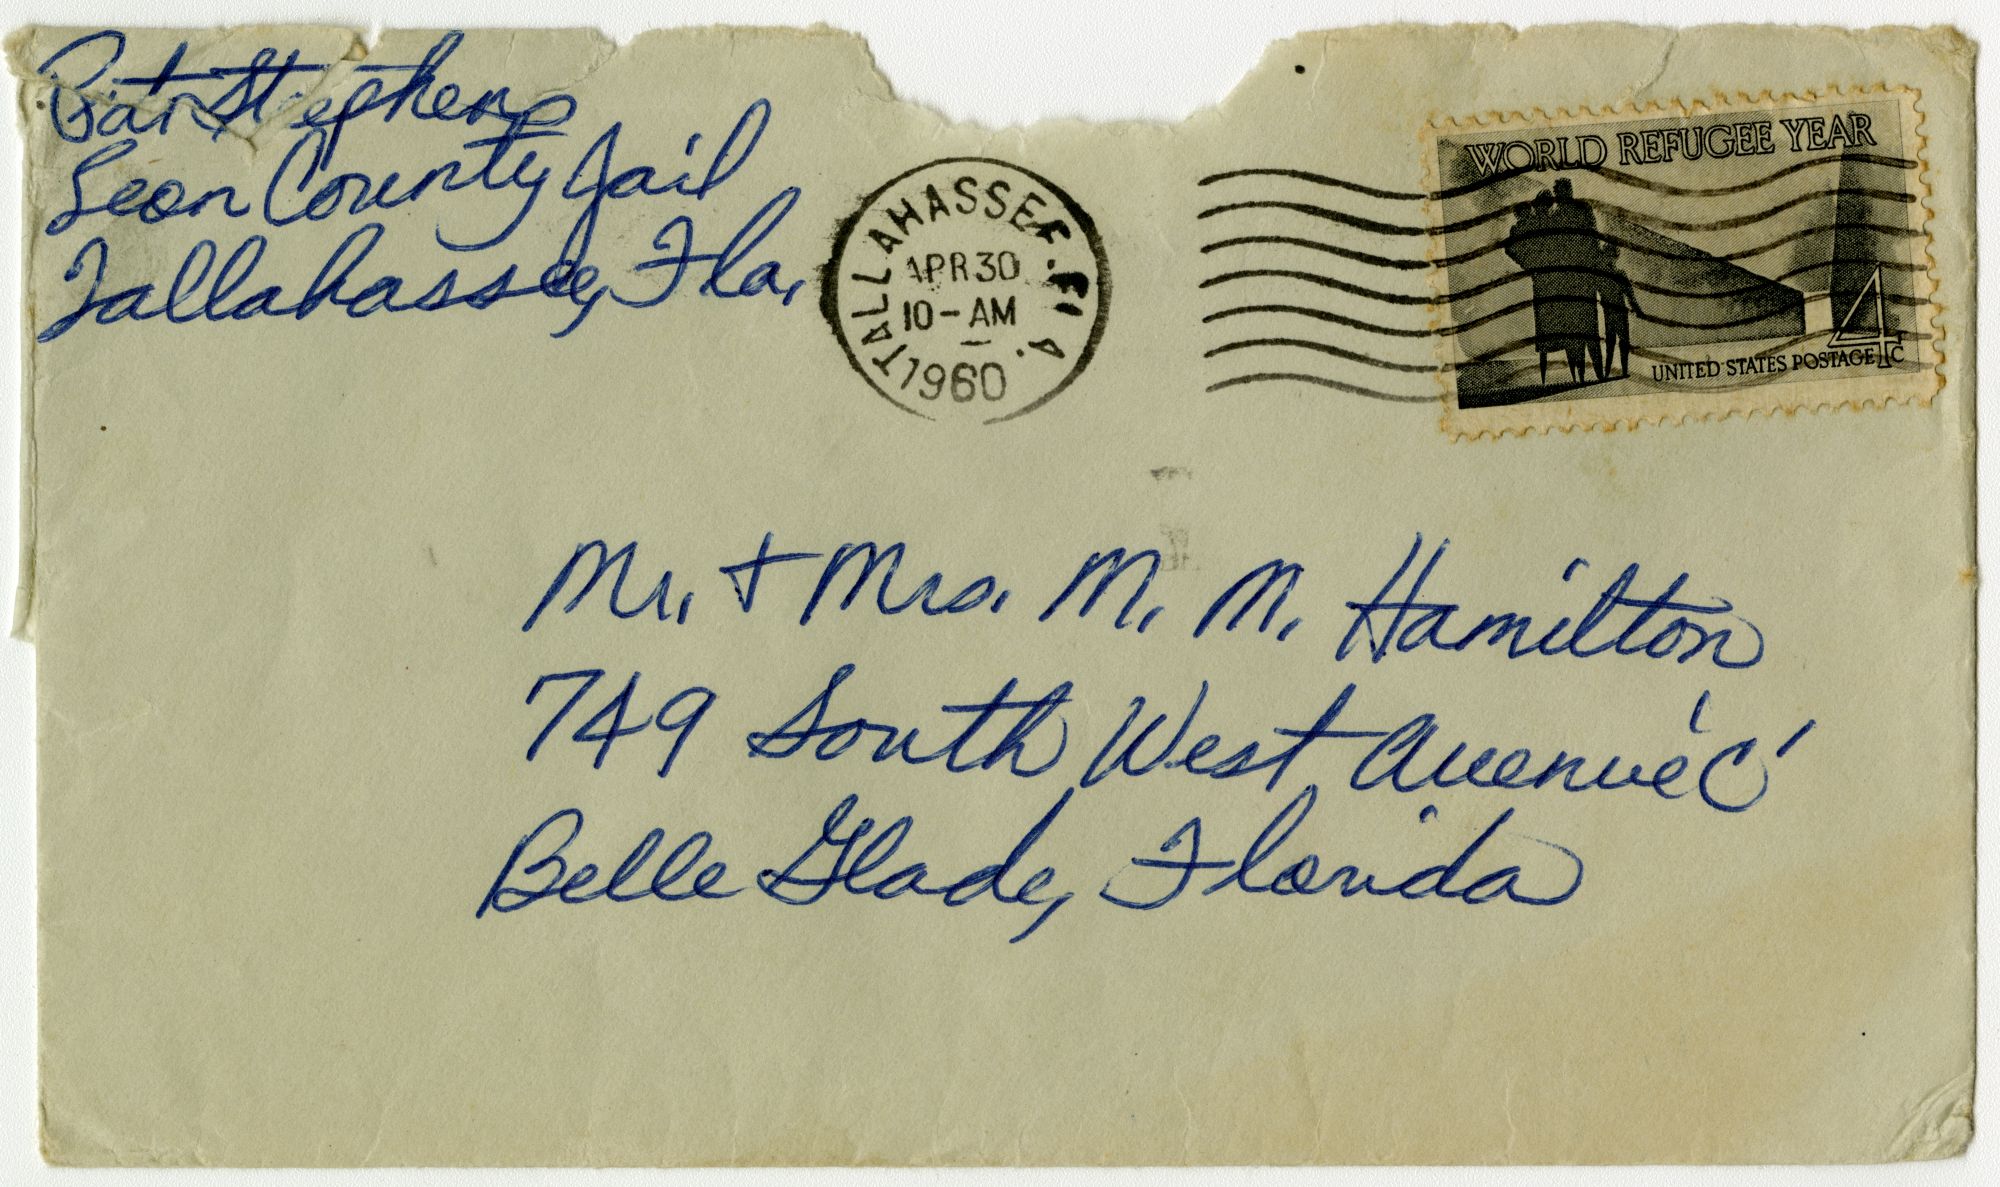 Pat Stephens
Leon County Jail
Tallahassee, Fla.
TALLAHASSEE, FLA.
APR 30
10-AM
1960
WORLD REFUGEE YEAR
4c
UNITED STATES POSTAGE
Mr. + Mrs. M. M. Hamilton
749 South West Avenue 'C'
Belle Glade, Florida